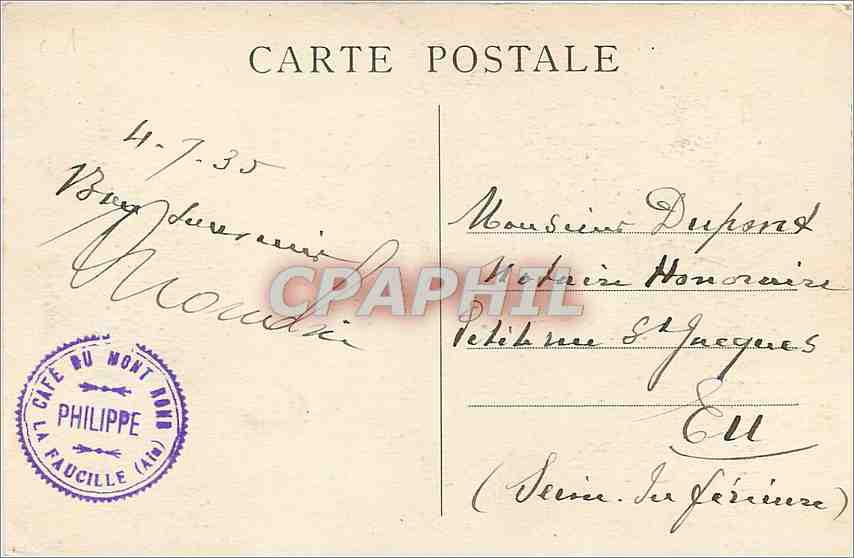 CARTE POSTALE
4-7-35
Bon Souvenir
Monsieur Dupont
Notaire Honoraire
Petite rue St Jacques
Eu
(Seine-Inférieure)
CPAPHIL
CAFÉ DU MONT ROND
PHILIPPE
LA FAUCILLE (Ain)